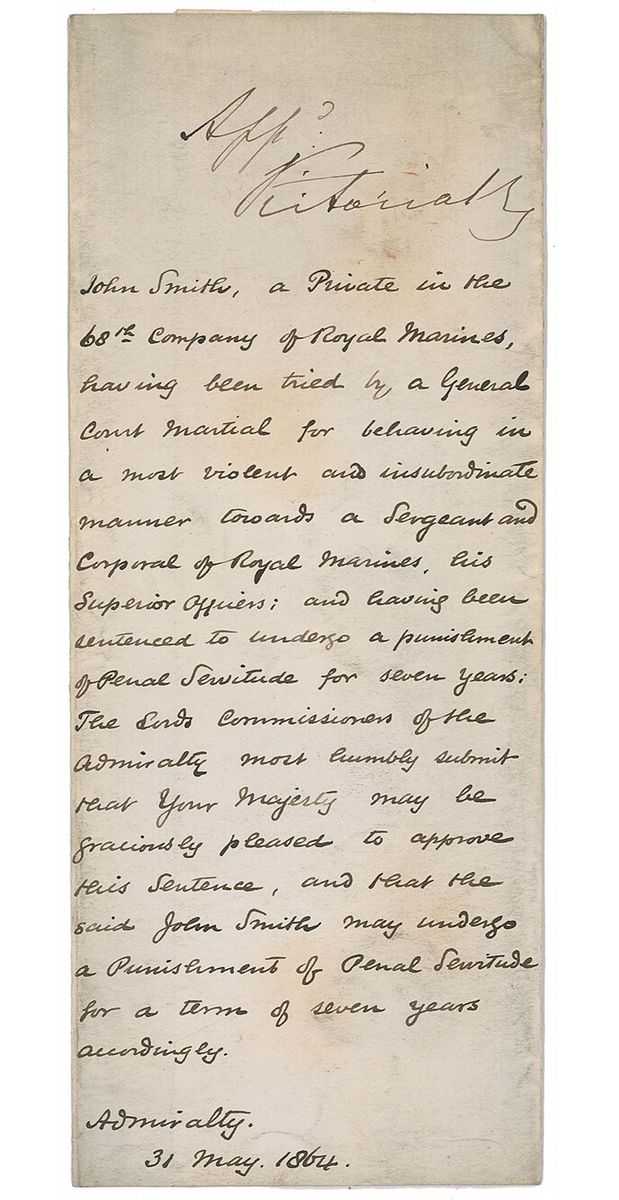 Appd.
Victoria R
John Smith, a Private in the
68th Company of Royal Marines,
having been tried by, a General
Court Martial for behaving in
a most violent and insubordinate
manner towards a Sergeant and
Corporal of Royal Marines, his
Superior Officers; and having been
sentenced to undergo a punishment
of Penal Servitude for seven years;
The Lords Commissioners of the
Admiralty most humbly submit
that Your Majesty may be
graciously pleased to approve
this Sentence, and that the
said John Smith may undergo
a Punishment of Penal Servitude
for a term of seven years
accordingly.
Admiralty.
31 May. 1864.